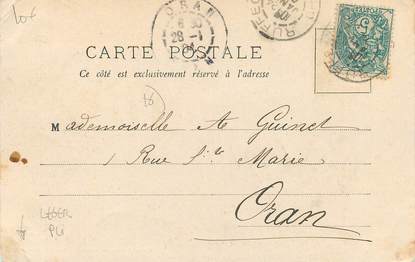 10€
ORAN
6
28 -1
04
RUFFEC
CARTE POSTALE
Ce côté est exclusivement réservé à l'adresse
Mademoiselle A Guinet
1 Rue Ste Marie
Oran
LEGER
PLI